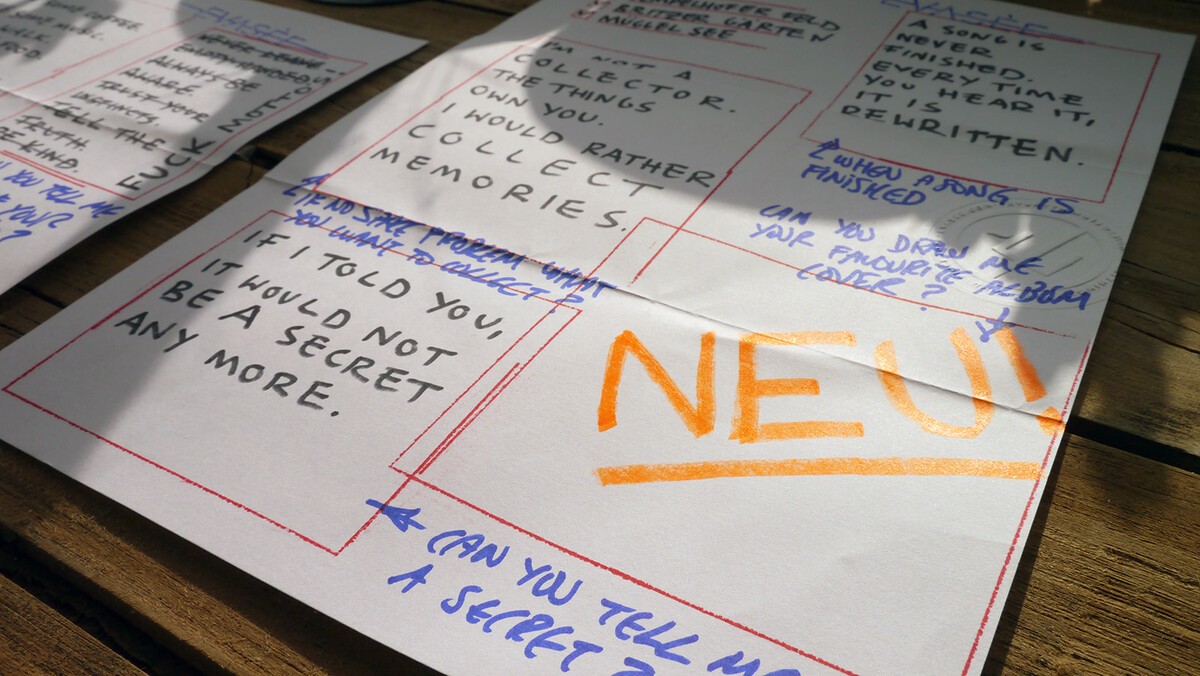 ALWAYS BE
AWARE
TRUST YOUR
INSTINCTS
TELL THE
TRUTH
BE KIND.
FUCK
YOU TELL ME
YOUR
?
FELD
BRITZER GARTEN
MUGGEL SEE
I'M NOT A
COLLECTOR.
THE THINGS
OWN YOU.
I WOULD RATHER
COLLECT
MEMORIES.
A SONG IS
NEVER
FINISHED.
EVERY TIME
YOU HEAR IT,
IT IS
REWRITTEN.
WHEN A SONG IS
FINISHED
CAN YOU DRAW ME
YOUR FAVOURITE ALBUM
COVER?
IF NO SPACE PROBLEM WHAT
YOU WANT TO COLLECT?
IF I TOLD YOU,
IT WOULD NOT
BE A SECRET
ANY MORE.
NEU!
CAN YOU TELL ME
A SECRET?